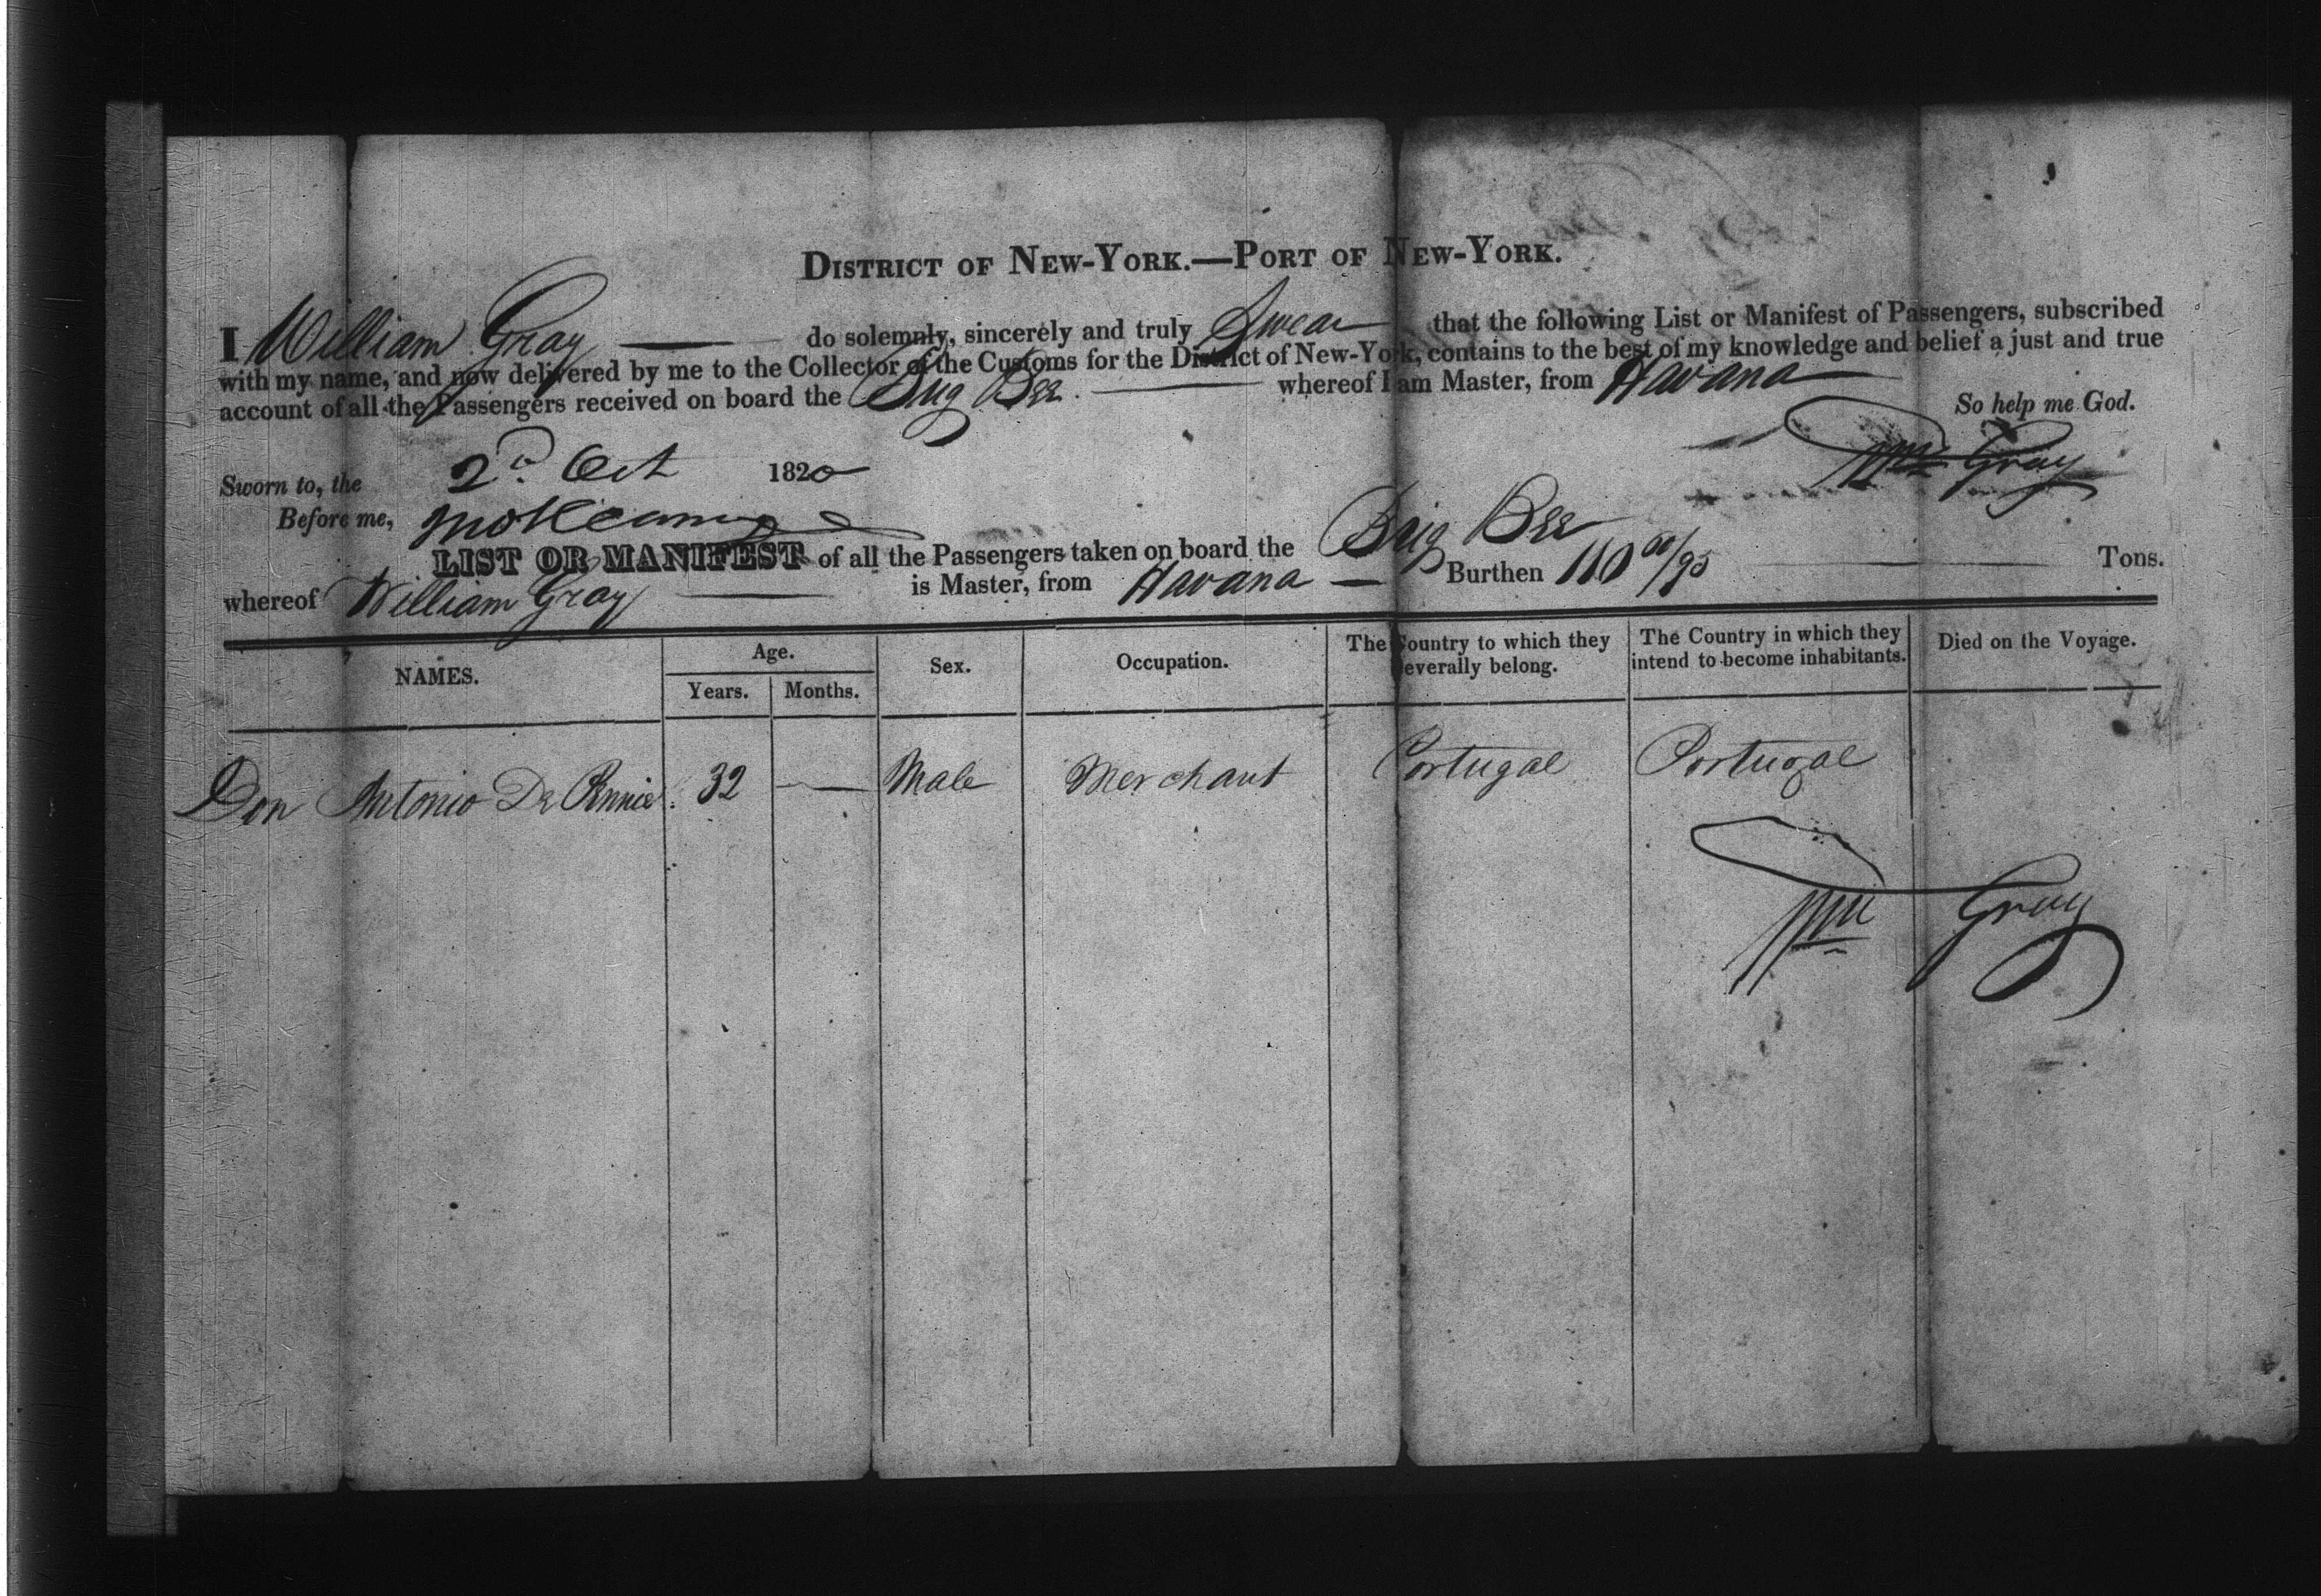 DISTRICT OF NEW-YORK.—PORT OF NEW-YORK.
I William Gray do solemnly, sincerely and truly Swear that the following List or Manifest of Passengers, subscribed
with my name, and now delivered by me to the Collector of the Customs for the District of New-York, contains to the best of my knowledge and belief a just and true
account of all the Passengers received on board the Brig Bee whereof I am Master, from Havana
So help me God.
Sworn to, the 2d Oct 1820
Wm Gray
Before me,
LIST OR MANIFEST of all the Passengers taken on board the Brig Bee
whereof William Gray is Master, from Havana — Burthen 110 /95 Tons.
NAMES. Age. Sex. Occupation. The Country to which they severally belong. The Country in which they intend to become inhabitants. Died on the Voyage.
Years. Months.
Don Antonio De 32 — Male Merchant Portugal Portugal
Wm Gray